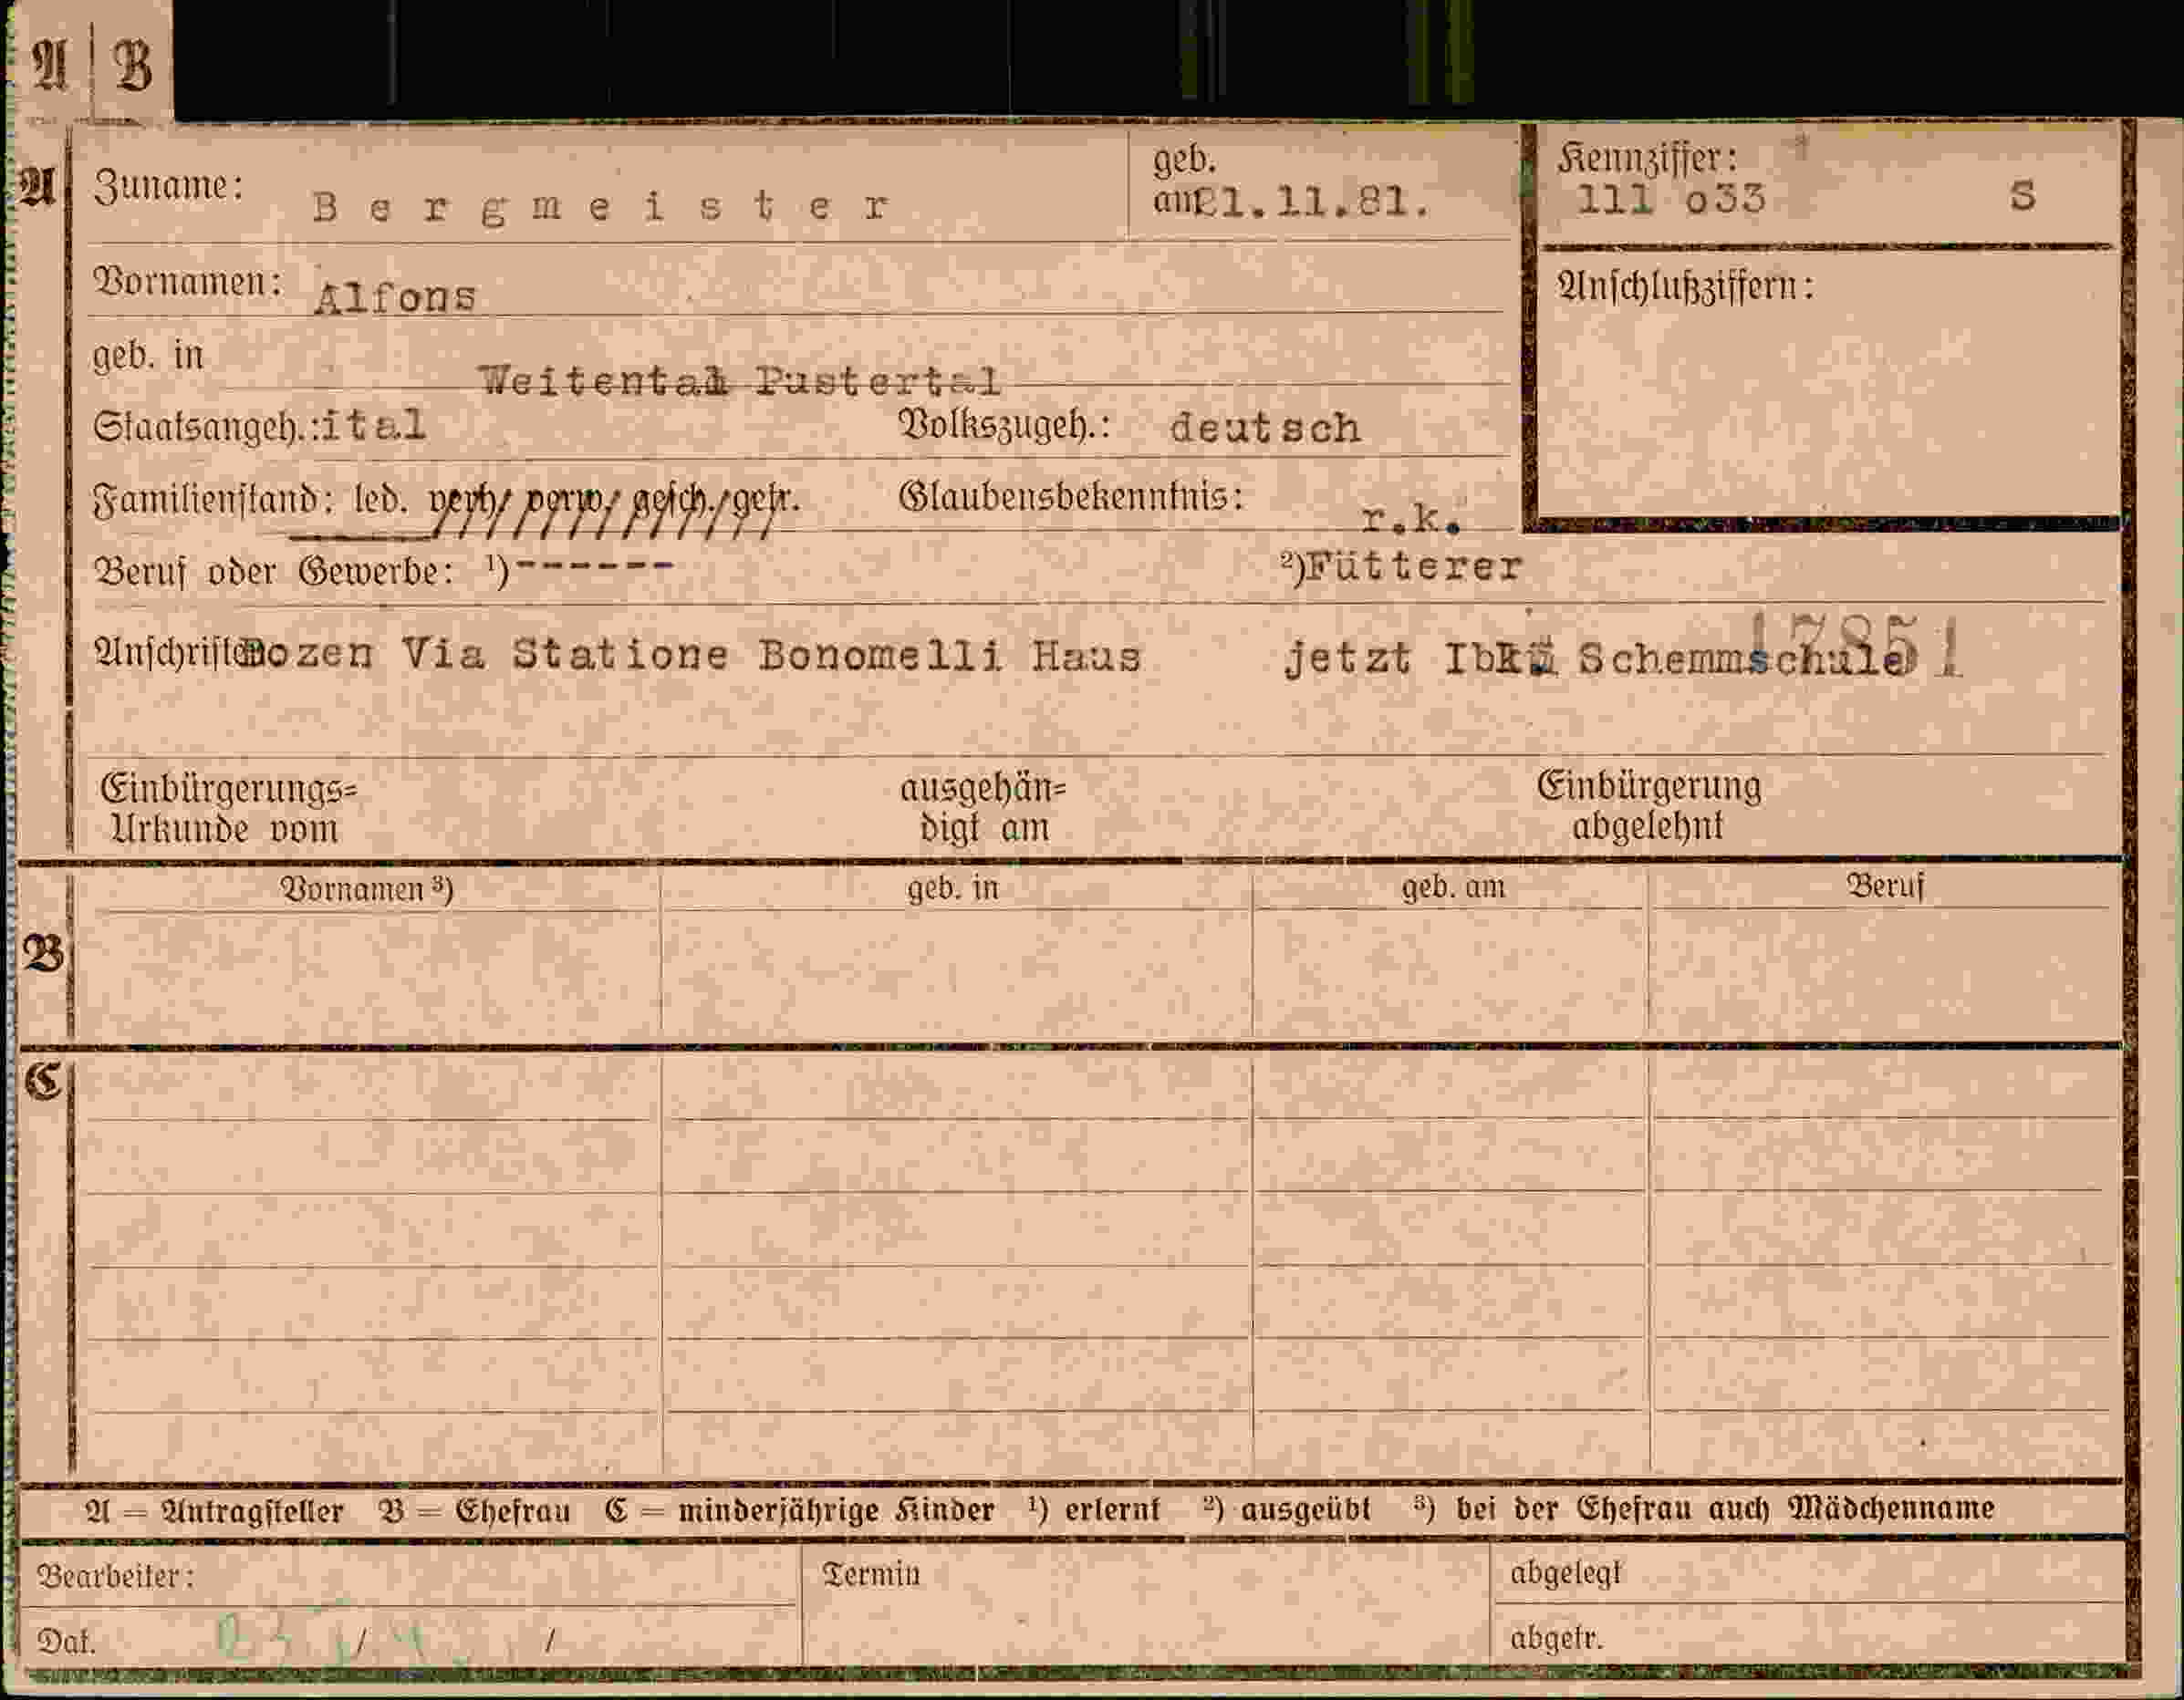 A | B
A
Zuname: Bergmeister
geb. am 21.11.81.
Kennziffer:
111 o33 S
Vornamen: Alfons
Anschlußziffern:
geb. in Weitental Pustertal
Staatsangeh.: ital Volkszugeh.: deutsch
Familienstand: led. verh/ verw/ gesch./getr. Glaubensbekenntnis: r.k.
Beruf oder Gewerbe: ¹)------ ²)Fütterer
Anschriften Bozen Via Statione Bonomelli Haus jetzt Ibk Schemmschule
17851
Einbürgerungs=
Urkunde vom
ausgehän=
digt am
Einbürgerung
abgelehnt
B
Vornamen ³) geb. in geb. am Beruf
C
A = Antragsteller B = Ehefrau C = minderjährige Kinder ¹) erlernt ²) ausgeübt ³) bei der Ehefrau auch Mädchenname
Bearbeiter: Termin abgelegt
Dat. / / abgetr.